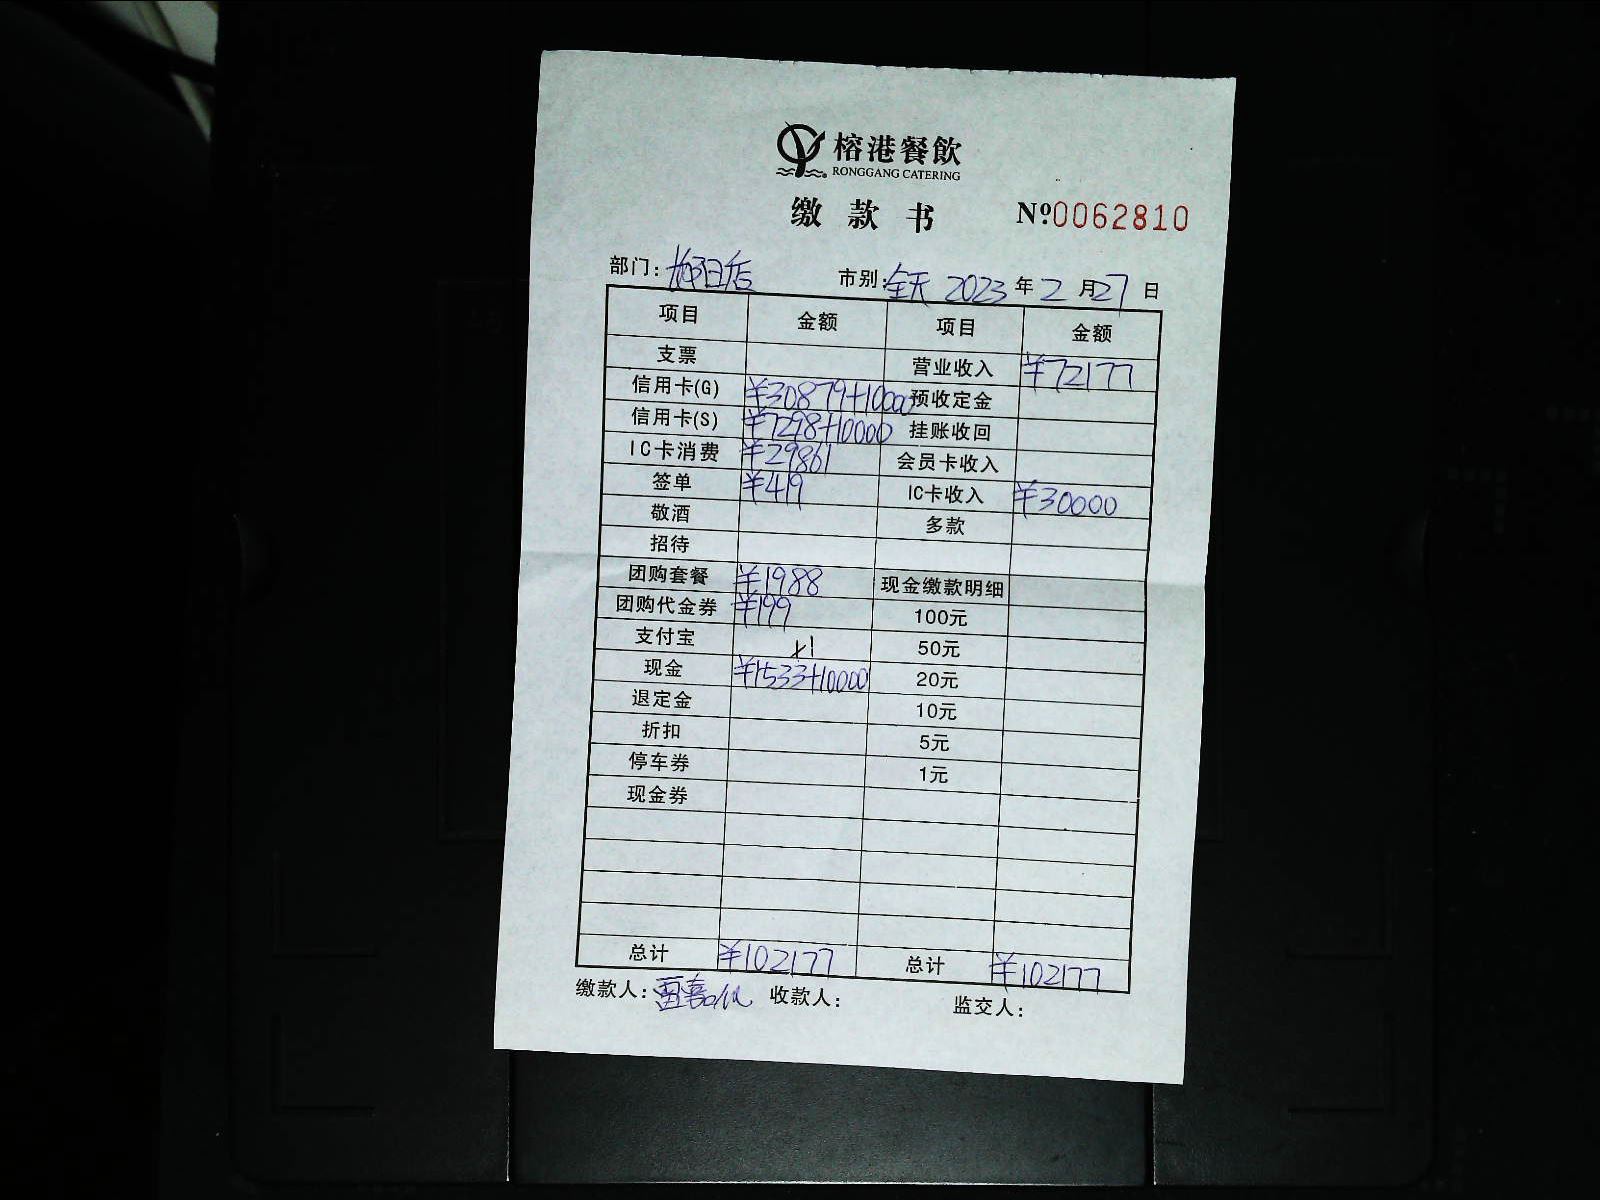 榕港餐飲
RONGGANG CATERING
缴款书 Nº0062810
部门: 市别:全天 2023年2月27日
项目 金额 项目 金额
支票 营业收入 ¥72177
信用卡(G) ¥30879+10000 预收定金
信用卡(S) ¥7298+10000 挂账收回
IC卡消费 ¥29861 会员卡收入
签单 ¥419 IC卡收入 ¥30000
敬酒 多款
招待
团购套餐 ¥1988 现金缴款明细
团购代金券 ¥199 100元
支付宝 50元
现金 ¥1533+10000 20元
退定金 10元
折扣 5元
停车券 1元
现金券
总计 ¥102177 总计 ¥102177
缴款人: 收款人: 监交人: